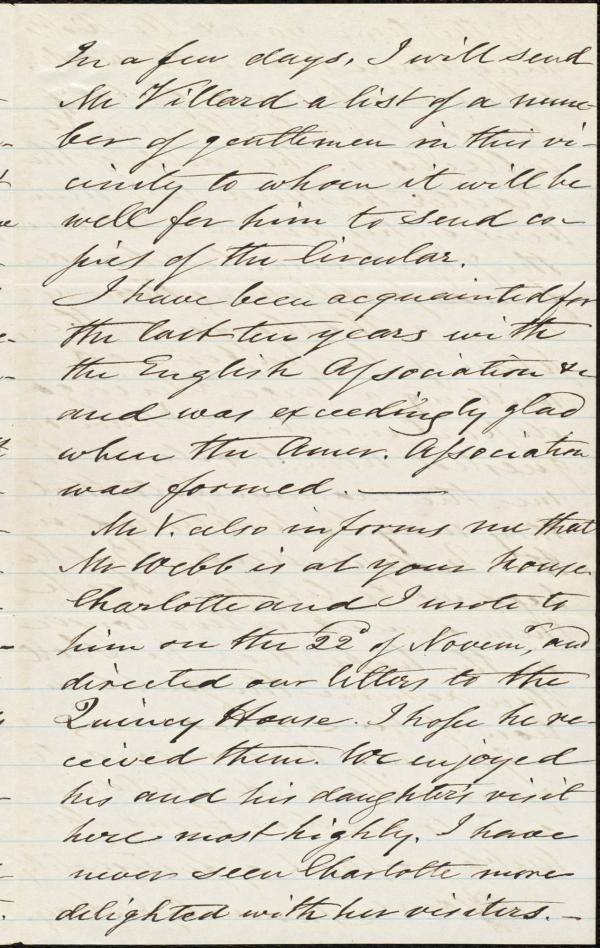 In a few days, I will send
Mr Villard a list of a num-
ber of gentlemen in this vi-
cinity to whom it will be
well for him to send co-
pies of the Circular.
I have been acquainted for
the last ten years with
the English Association &c
and was exceedingly glad
when the Amer. Association
was formed. ——
Mr V. also informs me that
Mr Webb is at your house.
Charlotte and I wrote to
him on the 22d of Novemr, and
directed our letters to the
Quincy House. I hope he re-
ceived them. We enjoyed
his and his daughter's visit
here most highly. I have
never seen Charlotte more
delighted with her visiters. —